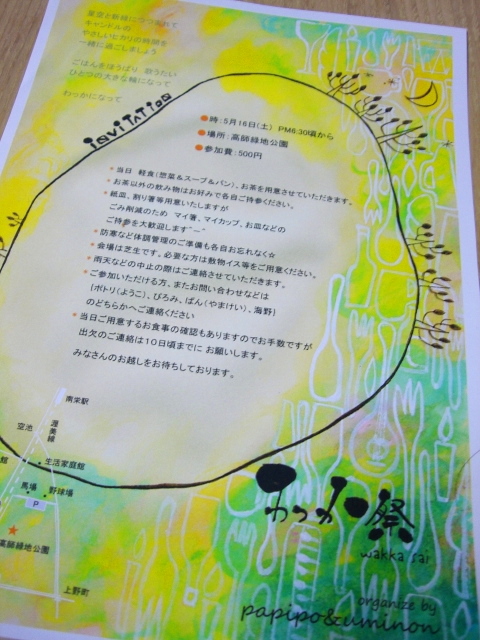 星空と新緑につつまれて
キャンドルの
やさしいヒカリの時間を
一緒に過ごしましょう
ごはんをほうばり 歌うたい
ひとつの大きな輪になって
わっかになって
invitation
●時：5月16日(土) PM6:30頃から
●場所：高師緑地公園
●参加費：500円
当日 軽食(惣菜&スープ&パン)、お茶を用意させていただきます。
お茶以外の飲み物はお好みで各自ご持参ください。
紙皿、割り箸等用意いたしますが
ごみ削減のため マイ箸、マイカップ、お皿などの
ご持参を大歓迎します^-^
防寒など体調管理のご準備も各自お忘れなく☆
会場は芝生です。必要な方は敷物イス等をご用意ください。
雨天などの中止の際はご連絡させていただきます。
ご参加いただける方、またお問い合わせなどは
(ポトリ(ようこ)、ぴろみ、ぱん(やまけい)、海野)
のどちらかへご連絡ください
当日ご用意するお食事の確認もありますのでお手数ですが
出欠のご連絡は10日頃までに お願いします。
みなさんのお越しをお待ちしております。
南栄駅
空池
渥美線
館
生活家庭館
馬場
野球場
P
高師緑地公園
上野町
わっか祭
wakka sai
organize by
papipo&uminon